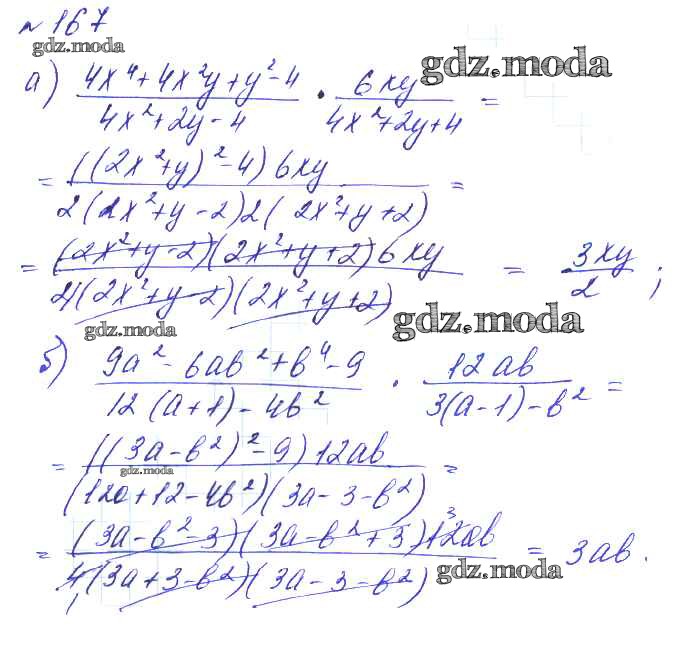 № 167
gdz.moda
а) (4x⁴+4x²y+y²-4)/(4x²+2y-4) · 6xy/(4x²+2y+4) =
gdz.moda
= ((2x²+y)²-4)6xy / 2(2x²+y-2)2(2x²+y+2) =
= (2x²+y-2)(2x²+y+2)6xy / 4(2x²+y-2)(2x²+y+2) = 3xy/2 ;
gdz.moda
gdz.moda
б) (9a²-6ab²+b⁴-9)/(12(a+1)-4b²) · 12ab/(3(a-1)-b²) =
= ((3a-b²)²-9)12ab / (12a+12-4b²)(3a-3-b²) =
gdz.moda
= (3a-b²-3)(3a-b²+3)12ab 3 / 4(3a+3-b²)(3a-3-b²) 1 = 3ab.
gdz.moda